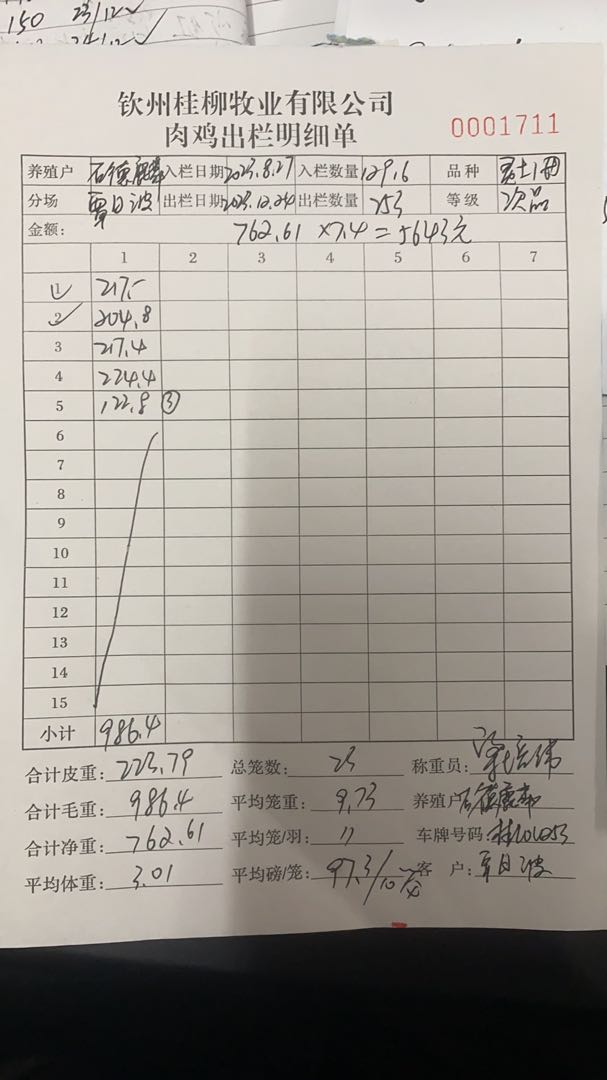 150 23/12
钦州桂柳牧业有限公司
肉鸡出栏明细单 0001711
养殖户 石德 入栏日期 2023.8.27 入栏数量 12916 品种
分场 覃日波 出栏日期 2023.12.24 出栏数量 253 等级 次品
金额: 762.61 ×7.4=5643元
1 2 3 4 5 6 7
1 217.-
2 204.8
3 217.4
4 224.4
5 122.8 ③
6
7
8
9
10
11
12
13
14
15
小计 986.4
合计皮重: 223.79 总笼数: 23 称重员:
合计毛重: 986.4 平均笼重: 9.73 养殖户: 石德
合计净重: 762.61 平均笼/羽: 11 车牌号码:
平均体重: 3.01 平均磅/笼: 97.3/10 客 户: 覃日波